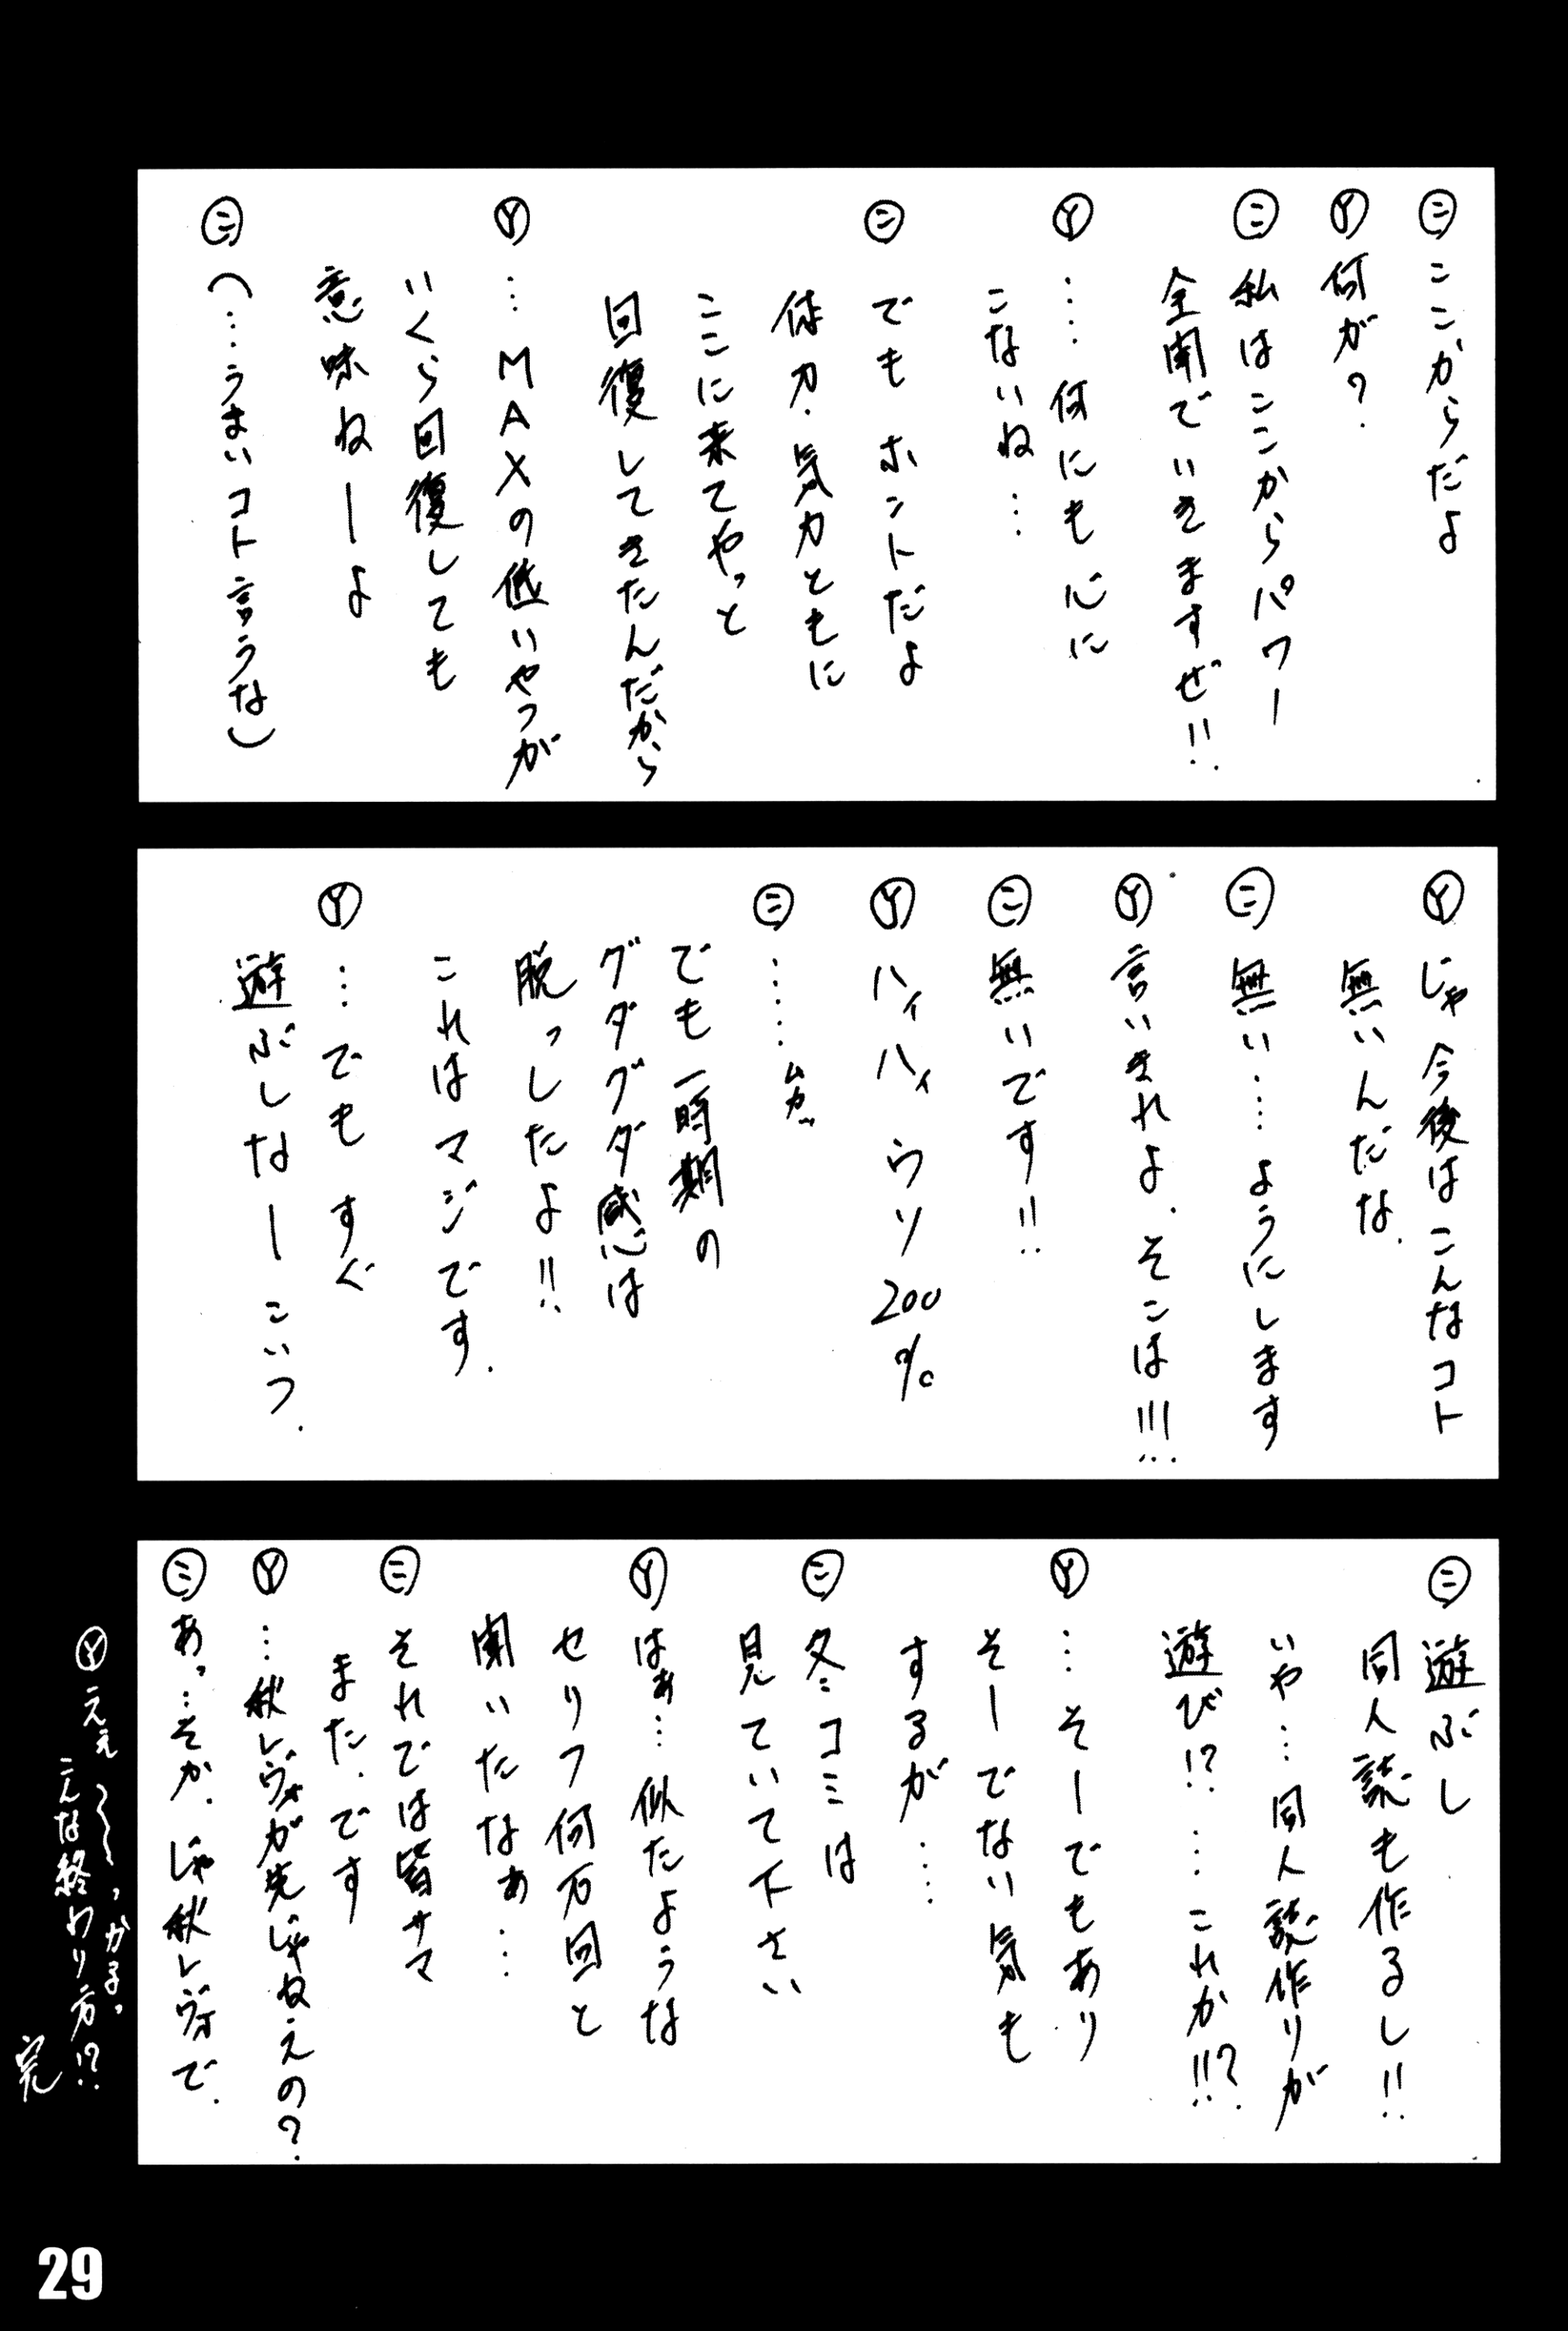 ㊁ここからだよ
Ⓨ何が？
㊁私はここからパワー
全開でいきますぜ!!
Ⓨ……何にも心に
こないね…
㊁でもホントだよ
体力・気力ともに
ここに来てやっと
回復してきたんだから
Ⓨ…MAXの低いやつが
いくら回復しても
意味ねーよ
㊁(…うまいコト言うな)
Ⓨじゃ今後はこんなコト
無いんだな.
㊁無い……ようにします
Ⓨ言いきれよ.そこは!!!
㊁無いです!!
Ⓨハイハイ ウソ200%
㊁……ムカッ
でも一時期の
グダグダ感は
脱っしたよ!!
これはマジです.
Ⓨ…でも すぐ
遊ぶしなーこいつ.
㊁遊ぶし
同人誌も作るし!!
いや…同人誌作りが
遊び!?……これか!!?
Ⓨ…そーでもあり
そーでない気も
するが……
㊁冬コミは
見ていて下さい
Ⓨはぁ…似たような
セリフ何万回と
聞いたなぁ…
㊁それでは皆サマ
また.です
Ⓨ…秋レヴォが先じゃねえの?
㊁あっ…そか.じゃ秋レヴォで.
Ⓨええ〜〜っ
こんな終わり方!?
完
29